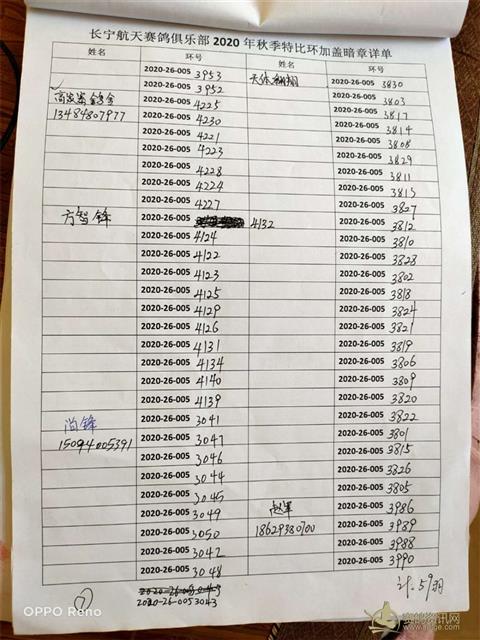 长宁航天赛鸽俱乐部 2020 年秋季特比环加盖暗章详单
姓名 环号 姓名 环号
2020-26-005 3953 天体翱翔 2020-26-005 3830
2020-26-005 3952 2020-26-005 3803
2020-26-005 4225 2020-26-005 3817
13484807977 2020-26-005 4230 2020-26-005 3814
2020-26-005 4221 2020-26-005 3808
2020-26-005 4223 2020-26-005 3829
2020-26-005 4228 2020-26-005 3811
2020-26-005 4224 2020-26-005 3813
2020-26-005 4227 2020-26-005 3827
方智锋 2020-26-005 4132 2020-26-005 3812
2020-26-005 4124 2020-26-005 3810
2020-26-005 4122 2020-26-005 3828
2020-26-005 4123 2020-26-005 3802
2020-26-005 4125 2020-26-005 3818
2020-26-005 4129 2020-26-005 3824
2020-26-005 4126 2020-26-005 3821
2020-26-005 4131 2020-26-005 3819
2020-26-005 4134 2020-26-005 3806
2020-26-005 4140 2020-26-005 3809
2020-26-005 4139 2020-26-005 3820
尚锋 2020-26-005 3041 2020-26-005 3822
15094005391 2020-26-005 3047 2020-26-005 3801
2020-26-005 3046 2020-26-005 3815
2020-26-005 3044 2020-26-005 3826
2020-26-005 3045 2020-26-005 3805
2020-26-005 3049 赵军 2020-26-005 3986
2020-26-005 3050 18629380700 2020-26-005 3989
2020-26-005 3042 2020-26-005 3988
2020-26-005 3048 2020-26-005 3990
2020-26-005 3043
计:59羽
OPPO Reno